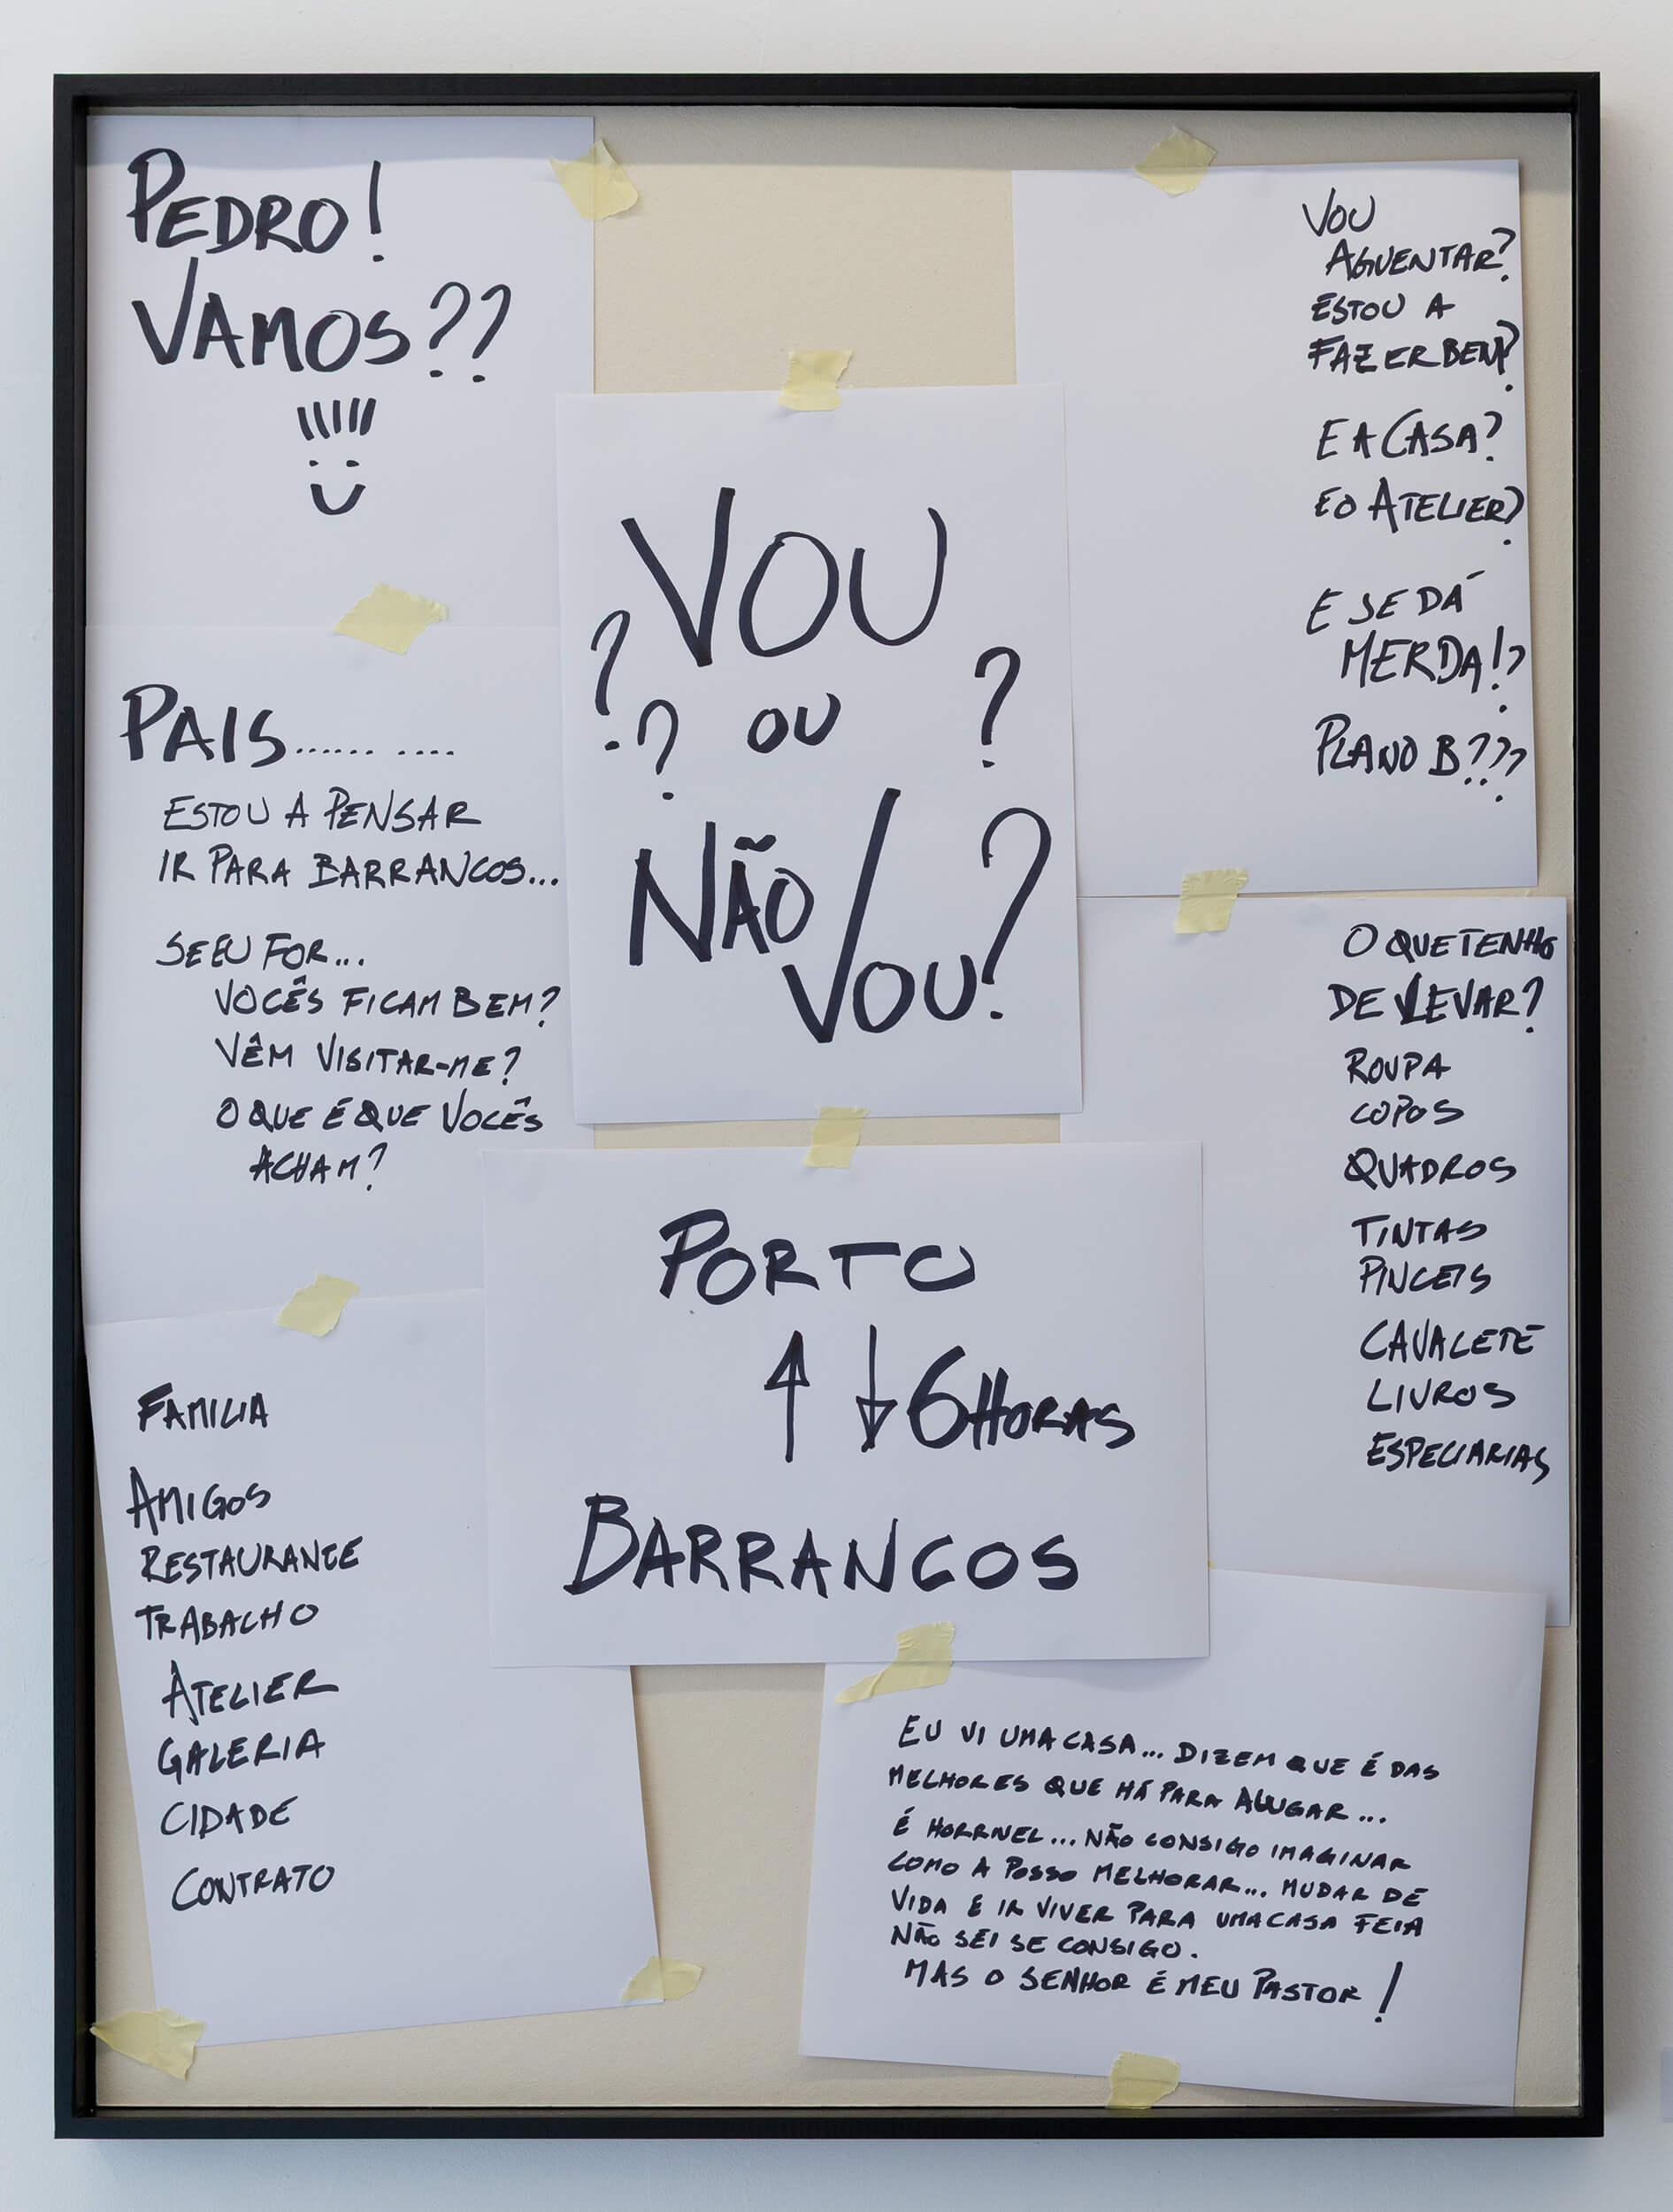 PEDRO!
VAMOS??
PAIS...... ....
ESTOU A PENSAR
IR PARA BARRANCOS...
SE EU FOR...
VOCÊS FICAM BEM?
VÊM VISITAR-ME?
O QUE É QUE VOCÊS
ACHAM?
FAMILIA
AMIGOS
RESTAURANTE
TRABALHO
ATELIER
GALERIA
CIDADE
CONTRATO
VOU
? ? OU ?
NÃO
VOU?
PORTO
↑ ↓ 6 HORAS
BARRANCOS
VOU
AGUENTAR?
ESTOU A
FAZER BEM?
E A CASA?
E O ATELIER?
E SE DÁ
MERDA!?
PLANO B???
O QUE TENHO
DE LEVAR?
ROUPA
COPOS
QUADROS
TINTAS
PINCEIS
CAVALETE
LIVROS
ESPECIARIAS
EU VI UMA CASA... DIZEM QUE É DAS
MELHORES QUE HÁ PARA ALUGAR...
É HORRIVEL... NÃO CONSIGO IMAGINAR
COMO A POSSO MELHORAR... MUDAR DE
VIDA E IR VIVER PARA UMA CASA FEIA
NÃO SEI SE CONSIGO.
MAS O SENHOR É MEU PASTOR!